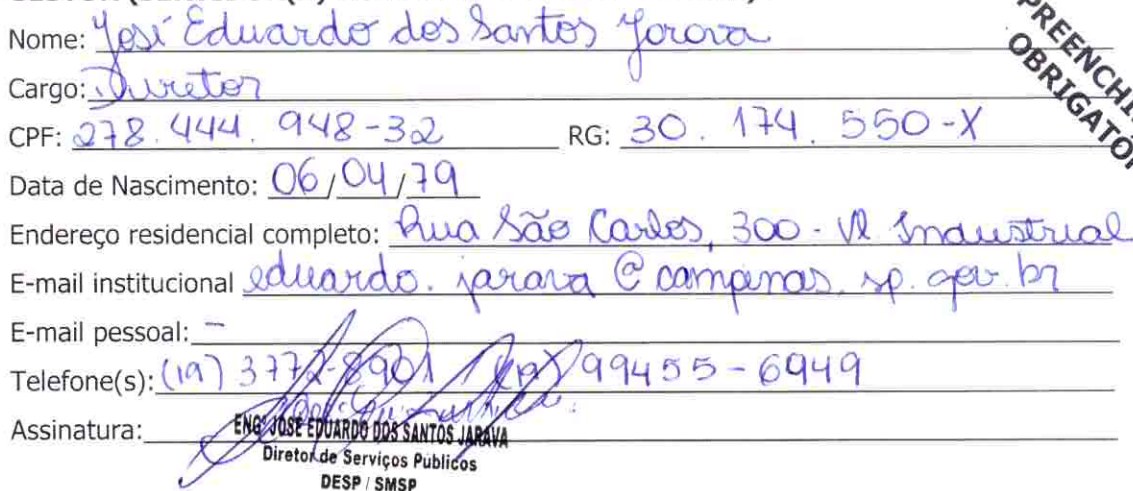 Nome: José Eduardo dos Santos Jarava
PREENCHI
OBRIGATÓR
Cargo: Diretor
CPF: 278.444.948-32 RG: 30.174.550-X
Data de Nascimento: 06/04/79
Endereço residencial completo: Rua São Carlos, 300 - Vl Industrial
E-mail institucional eduardo.jarava@campinas.sp.gov.br
E-mail pessoal: -
Telefone(s): (19) 3772-8901 / (19) 99455-6949
Assinatura:
ENGº JOSÉ EDUARDO DOS SANTOS JARAVA
Diretor de Serviços Públicos
DESP / SMSP